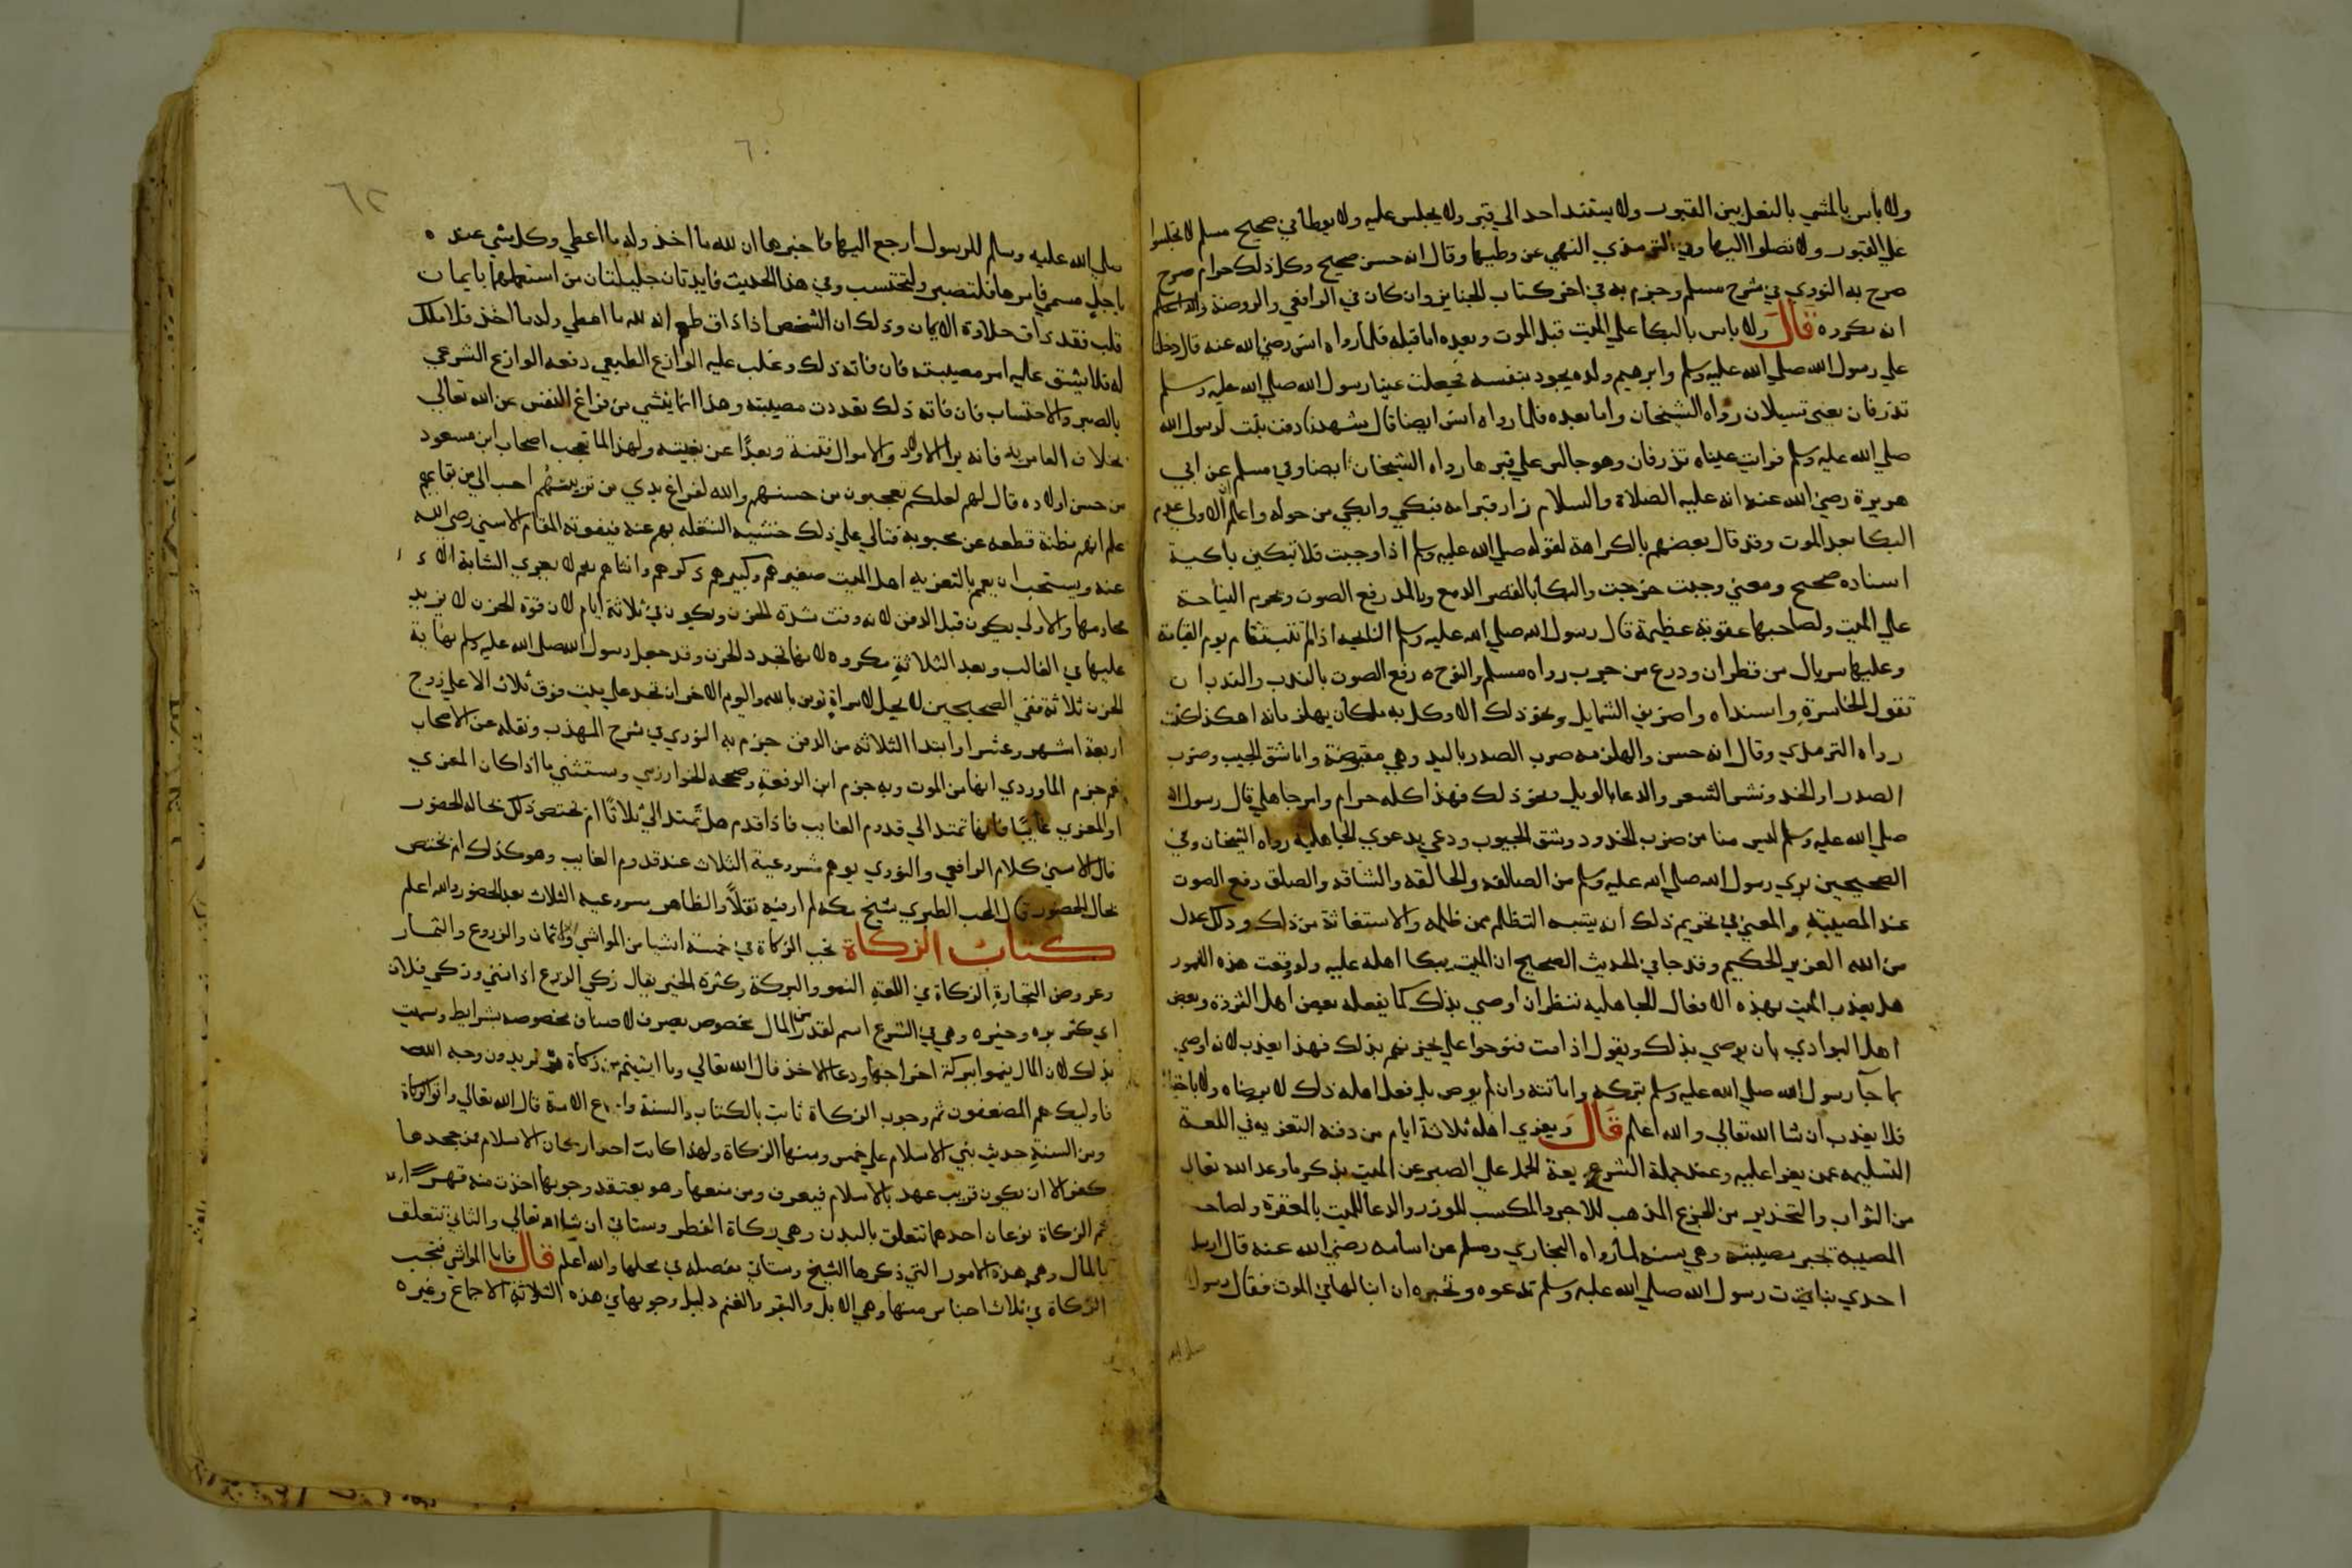 ولا باس بالمشي بالنعل بين القبور ولا يستند احد الي قبر ولا يجلس عليه ولا يوطأ في صحيح مسلم لا تجلسوا
علي القبور ولا تصلوا اليها وفي الترمذي النهي عن وطيها وقال انه حسن صحيح وكل ذلك حرام صرح
صرح به النووي في شرح مسلم وجزم به في اخر كتاب الجنايز وان كان في الرافعي والروضة والله اعلم
انه مكروه قال ولا باس بالبكا علي الميت قبل الموت وبعده اما قبله فلما رواه انس رضي الله عنه قال دخلنا
علي رسول الله صلي الله عليه وسلم وابرهيم ولده يجود بنفسه فجعلت عينا رسول الله صلي الله عليه وسلم
تذرفان يعني تسيلان رواه الشيخان واما بعده فلما رواه انس ايضا قال شهدنا دفن بنت لرسول الله
صلي الله عليه وسلم فرايت عيناه تذرفان وهو جالس علي قبرها رواه الشيخان ايضا وفي مسلم عن ابي
هريرة رضي الله عنه انه عليه الصلاة والسلام زار قبر امه فبكي وابكي من حوله واعلم ان الاولي عدم
البكا بعد الموت وقد قال بعضهم بالكراهة لقوله صلي الله عليه وسلم اذا وجبت فلا تبكين باكية
اسناده صحيح ومعني وجبت خرجت والبكا بالقصر الدمع وبالمد رفع الصوت وتحرم النياحة
علي الميت ولصاحبها عقوبة عظيمة قال رسول الله صلي الله عليه وسلم النايحه اذا لم تتب تقام يوم القيامة
وعليها سربال من قطران ودرع من جرب رواه مسلم والنوح رفع الصوت بالندب والندب ان
تقول الخاسرة واسنداه واحزيني الشمايل ونحو ذلك الا وكل به ملكان يلهزمانه اهكذا كنت
رواه الترمذي وقال انه حسن واللهزمه ضرب الصدر باليد وهي مقبوضة واما شق الجيب وضرب
الصدر او الخد ونشر الشعر والدعا بالويل ونحو ذلك فهذا كله حرام وامر جاهلي قال رسول الله
صلي الله عليه وسلم ليس منا من ضرب الخدود وشق الجيوب ودعي بدعوي الجاهلية رواه الشيخان وفي
الصحيحين بري رسول الله صلي الله عليه وسلم من الصالقة والحالقه والشاقه والصلق رفع الصوت
عند المصيبة والمعني في تحريم ذلك ان يشبه التظلم ممن ظلمه والاستغاثة من ذلك وذلك عدل
من الله العزيز الحكيم وقد جا في الحديث الصحيح ان الميت يبكا اهله عليه ولو وقعت هذه الامور
هل يعذب الميت بهذه الافعال الجاهليه ننظر ان اوصي بذلك كما يفعله بعض اهل الثروة وبعض
اهل البوادي بان يوصي بذلك ويقول اذا مت فنوحوا علي يحزنهم بذلك فهذا يعذب لانه اوصي
بما جآ رسول الله صلي الله عليه وسلم بتركه واماتته وان لم يوص بل فعل اهله ذلك لا برضاه ولا باختياره
فلا يعذب ان شا الله تعالي والله اعلم قال ويعزي اهله ثلاثة ايام من دفنه التعزيه في اللغة
التسليه عمن يعز عليه وعند حملة الشريعة الحمل علي الصبر عن الميت بذكر ما وعد الله تعالي
من الثواب والتحذير من الجزع المذهب للاجر والمكسب للوزر والدعا للميت بالمغفرة ولصاحب
المصيبة بجبر مصيبته وهي سنه لما رواه البخاري ومسلم عن اسامه رضي الله عنه قال ارسل
احدي بنات رسول الله صلي الله عليه وسلم تدعوه وتخبره ان ابنا لها في الموت فقال رسول
صلي الله
٦٠
٦٢
صلي الله عليه وسلم للرسول ارجع اليها فاخبرها ان لله ما اخذ وله ما اعطي وكل شي عنده
باجل مسمي فامرها فلتصبر ولتحتسب وفي هذا الحديث فايدتان جليلتان من استعملهما بايمان
قلب فقد ذاق حلاوة الايمان وذلك ان الشخص اذا ذاق طعم انه لله ما اعطي وله ما اخذ فلا ملك
له فلا يشق عليه امر مصيبته فان فاته ذلك وغلب عليه الوازع الطبيعي دفعه الوازع الشرعي
بالصبر والاحتساب فان فاته ذلك تعددت مصيبته وهذا انما ينشي من فراغ النفس عن الله تعالي
بخلاف العامر به فانه يرا الاولاد والاموال فتنة وبعدًا عن بغيته ولهذا لما تعجب اصحاب ابن مسعود
من حسن اولاده قال لهم لعلكم تعجبون من حسنهم والله لفراغ يدي من تربيتهم احب الي من بقايهم
علم انهم مظنة قطعه عن محبوبه فتالي علي ذلك خشيه الشغله بهم عنه فيفوته المقام الاسني رضي الله
عنه ويستحب ان يعم بالتعزيه اهل الميت صغيرهم وكبيرهم ذكرهم وانثاهم نعم لا يعزي الشابة الا
محارمها والاولي يكون قبل الدفن لانه وقت شدة الحزن ويكون في ثلاثة ايام لان قوة الحزن لا يزيد
عليها في الغالب وبعد الثلاثة مكروه لانها تجدد الحزن وقد جعل رسول الله صلي الله عليه وسلم نهاية
الحزن ثلاثة ففي الصحيحين لا يحل لامراة تومن بالله واليوم الاخر ان تحد علي ميت فوق ثلاث الا علي زوج
اربعة اشهر وعشرا وابتدا الثلاثه من الدفن جزم به النووي في شرح المهذب ونقله عن الاصحاب
نعم جزم الماوردي انها من الموت وبه جزم ابن الرفعة وصححه الخوارزمي ويستثني ما اذا كان المعزي
او المعزي غايبًا فانها تمتد الي قدوم الغايب فاذا قدم هل تمتد الي ثلاثا ام تختص ذلك بحالة الحضور
قال الاسني كلام الرافعي والنووي يوهم مشروعية الثلاث عند قدوم الغايب وهو كذلك ام تختص
بحال الحضور قال المحب الطبري شيخ مكه لم ار فيه نقلًا والظاهر مشروعية الثلاث بعد الحضور والله اعلم
كتاب الزكاة تجب الزكاة في خمسة اشيا من المواشي والاثمان والزروع والثمار
وعروض التجارة الزكاة في اللغة النمو والبركة وكثرة الخير يقال زكي الزرع اذا نمي وزكي فلان
اي كثر بره وخيره وهي في الشرع اسم لقدر من المال مخصوص يصرف لاصناف مخصوصه بشرايط وسميت
بذلك لان المال ينموا ببركة اخراجها ودعا الاخذ قال الله تعالي وما اتيتم من زكاة تريدون وجه الله
فاوليك هم المضعفون ثم وجوب الزكاة ثابت بالكتاب والسنة واجماع الامة قال الله تعالي واتوا الزكاة
ومن السنة حديث بني الاسلام علي خمس ومنها الزكاة ولهذا كانت احد اركان الاسلام من جحدها
كفر الا ان يكون قريب عهد بالاسلام فيعرف ومن منعها وهو يعتقد وجوبها اخذت منه قهرًا
ثم الزكاة نوعان احدهما تتعلق بالبدن وهي زكاة الفطر وستاتي ان شا الله تعالي والثاني تتعلق
بالمال وهي هذه الامور التي ذكرها الشيخ وستاتي مفصله في محلها والله اعلم قال فاما المواشي فتجب
الزكاة في ثلاث اجناس منها وهي الابل والبقر والغنم دليل وجوبها في هذه الثلاثة الاجماع وغيره